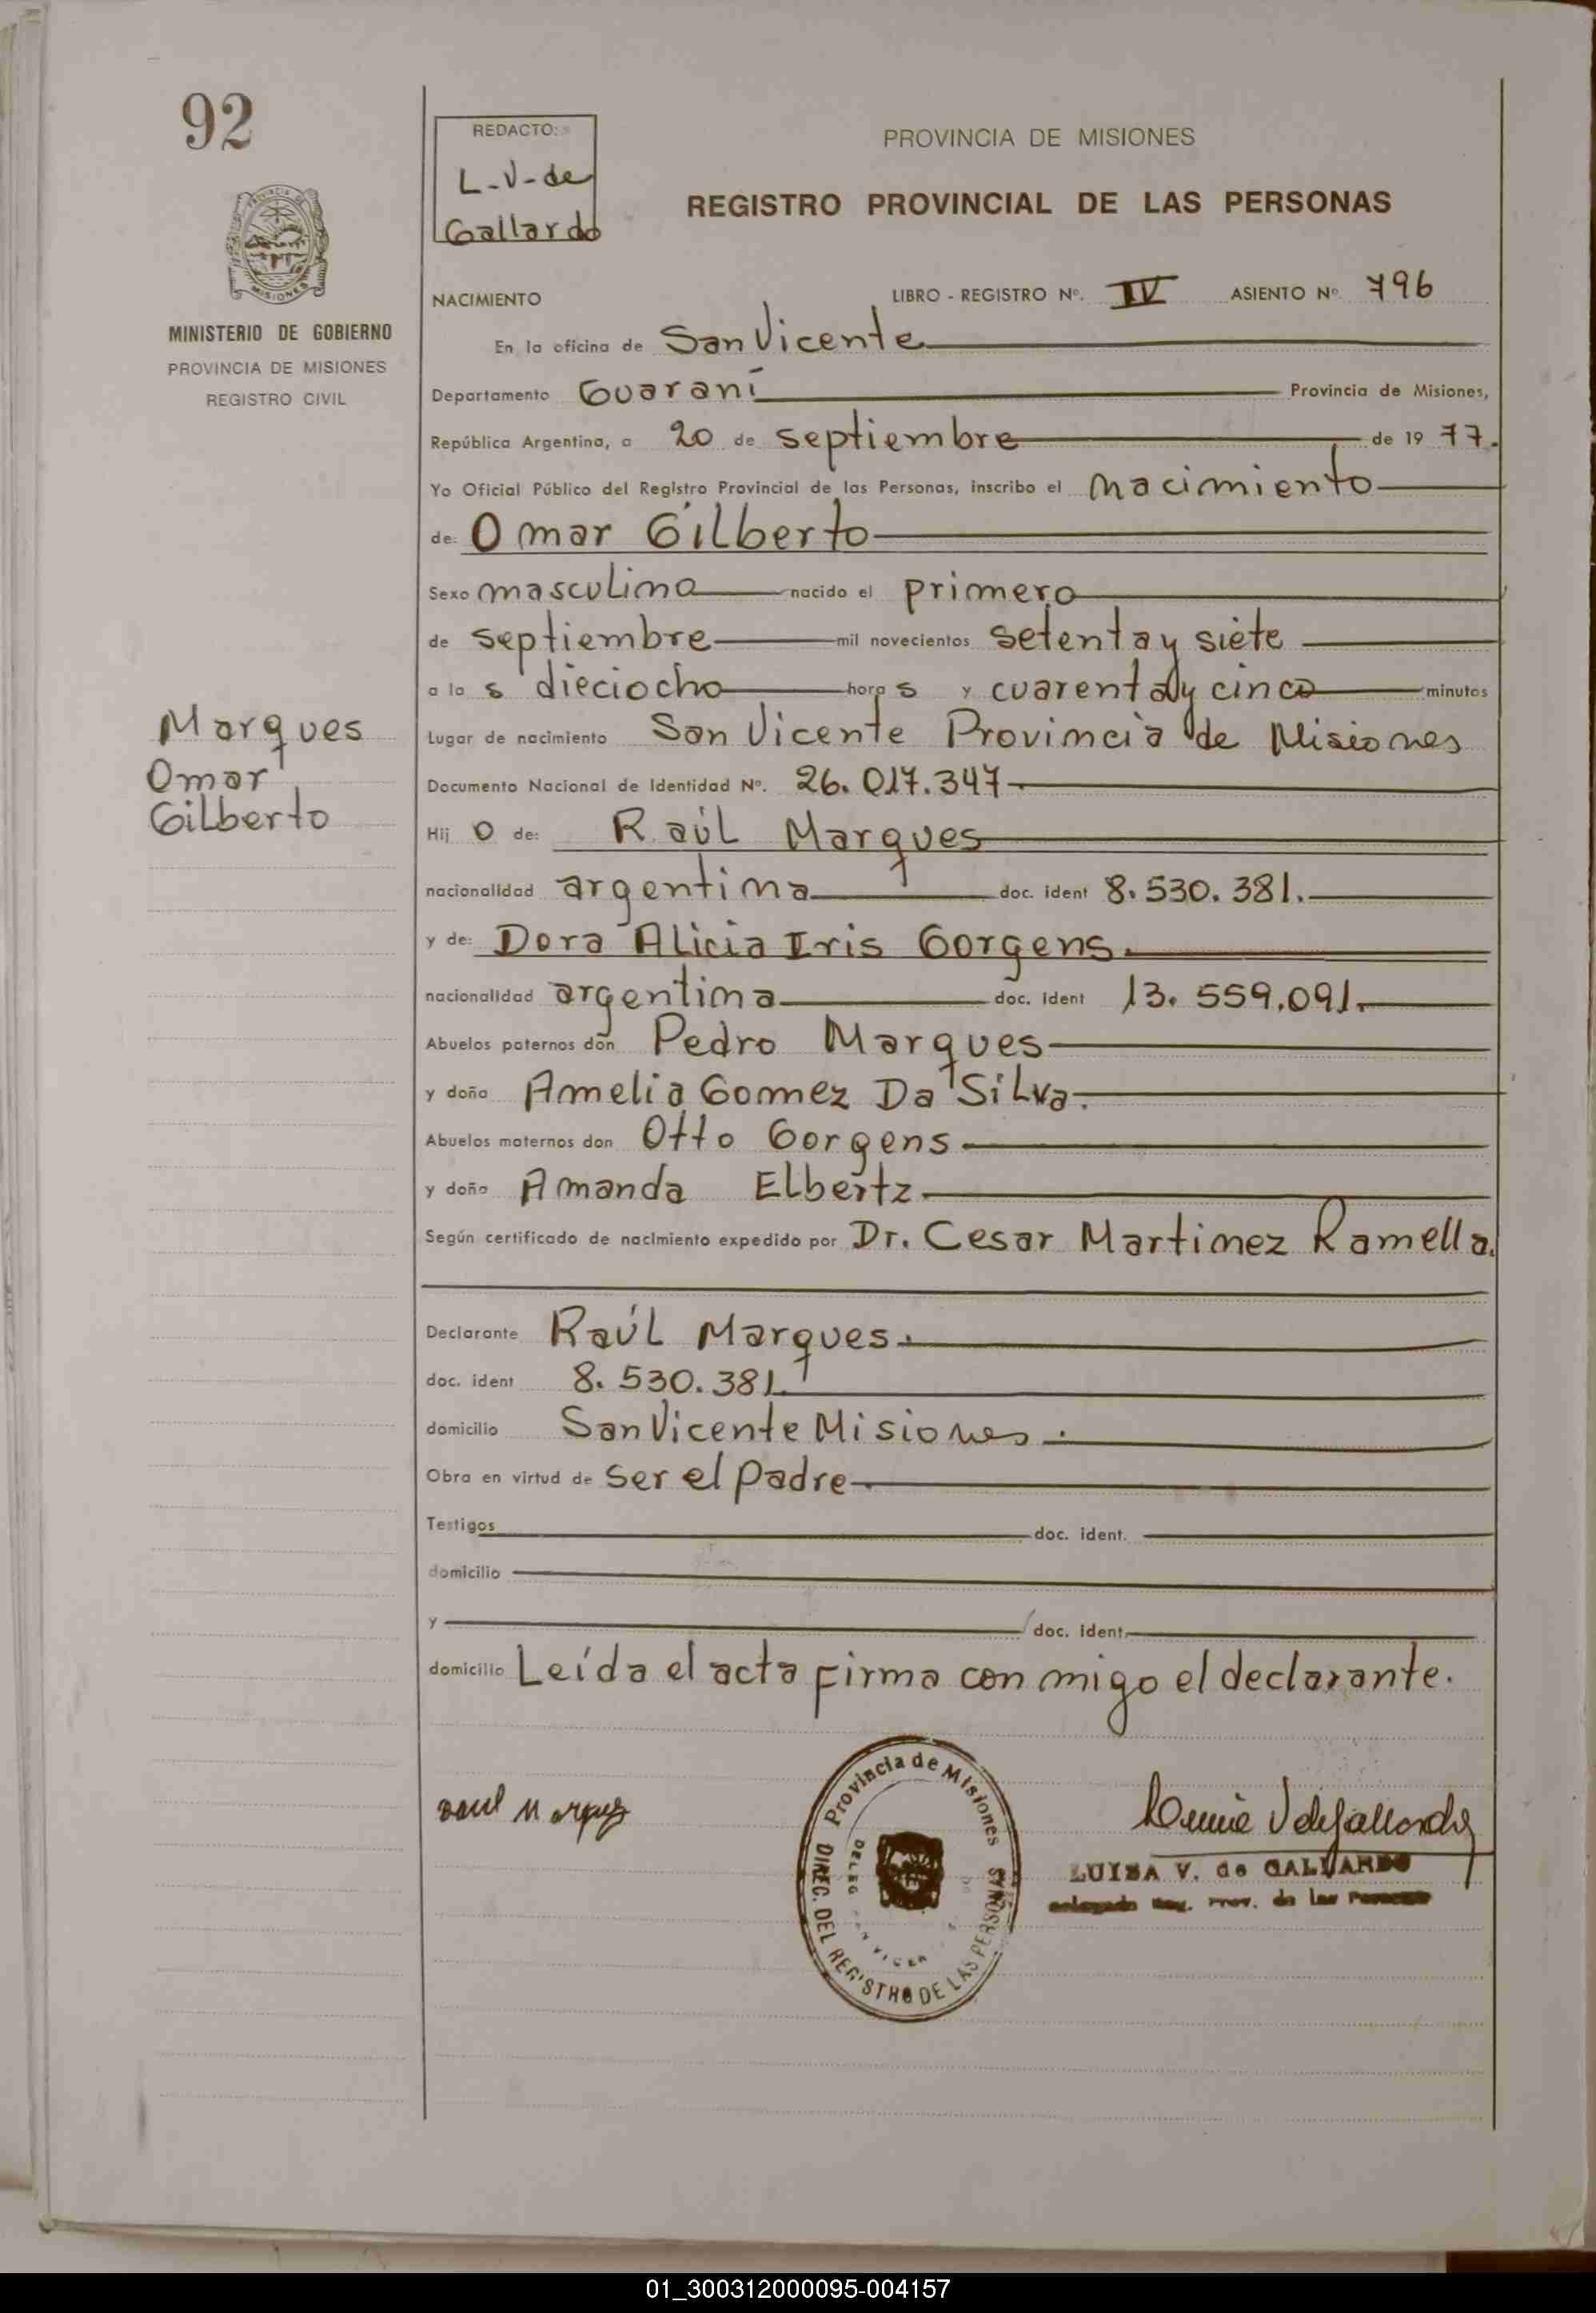 92
REDACTO:
L-V-de
Gallardo
PROVINCIA DE MISIONES
REGISTRO PROVINCIAL DE LAS PERSONAS
MISIONES
MINISTERIO DE GOBIERNO
PROVINCIA DE MISIONES
REGISTRO CIVIL
NACIMIENTO LIBRO - REGISTRO Nº. IV ASIENTO Nº 796
En la oficina de San Vicente
Departamento Guaraní Provincia de Misiones,
República Argentina, a 20 de septiembre de 19 77.
Yo Oficial Público del Registro Provincial de las Personas, inscribo el nacimiento
de: Omar Gilberto
Sexo masculino nacido el primero
de septiembre mil novecientos setenta y siete
a la s dieciocho hora s y cuarenta y cinco minutos
Marques
Omar
Gilberto
Lugar de nacimiento San Vicente Provincia de Misiones
Documento Nacional de Identidad Nº. 26.017.347
Hij o de: Raúl Marques
nacionalidad argentina doc. ident 8.530.381.
y de: Dora Alicia Iris Gorgens.
nacionalidad argentina doc. ident 13.559.091.
Abuelos paternos don Pedro Marques
y doña Amelia Gomez Da Silva.
Abuelos maternos don Otto Gorgens
y doña Amanda Elbertz
Según certificado de nacimiento expedido por Dr. Cesar Martinez Ramella.
Declarante Raúl Marques.
doc. ident 8.530.381
domicilio San Vicente Misiones.
Obra en virtud de ser el padre
Testigos doc. ident.
domicilio
y doc. ident.
domicilio Leída el acta firma con migo el declarante.
Raul Marques
Provincia de Misiones
DIREC. DEL REGISTRO DE LAS PERSONAS
LUISA V. de GALLARDO
Delegada Reg. Prov. de las Personas
01_300312000095-004157